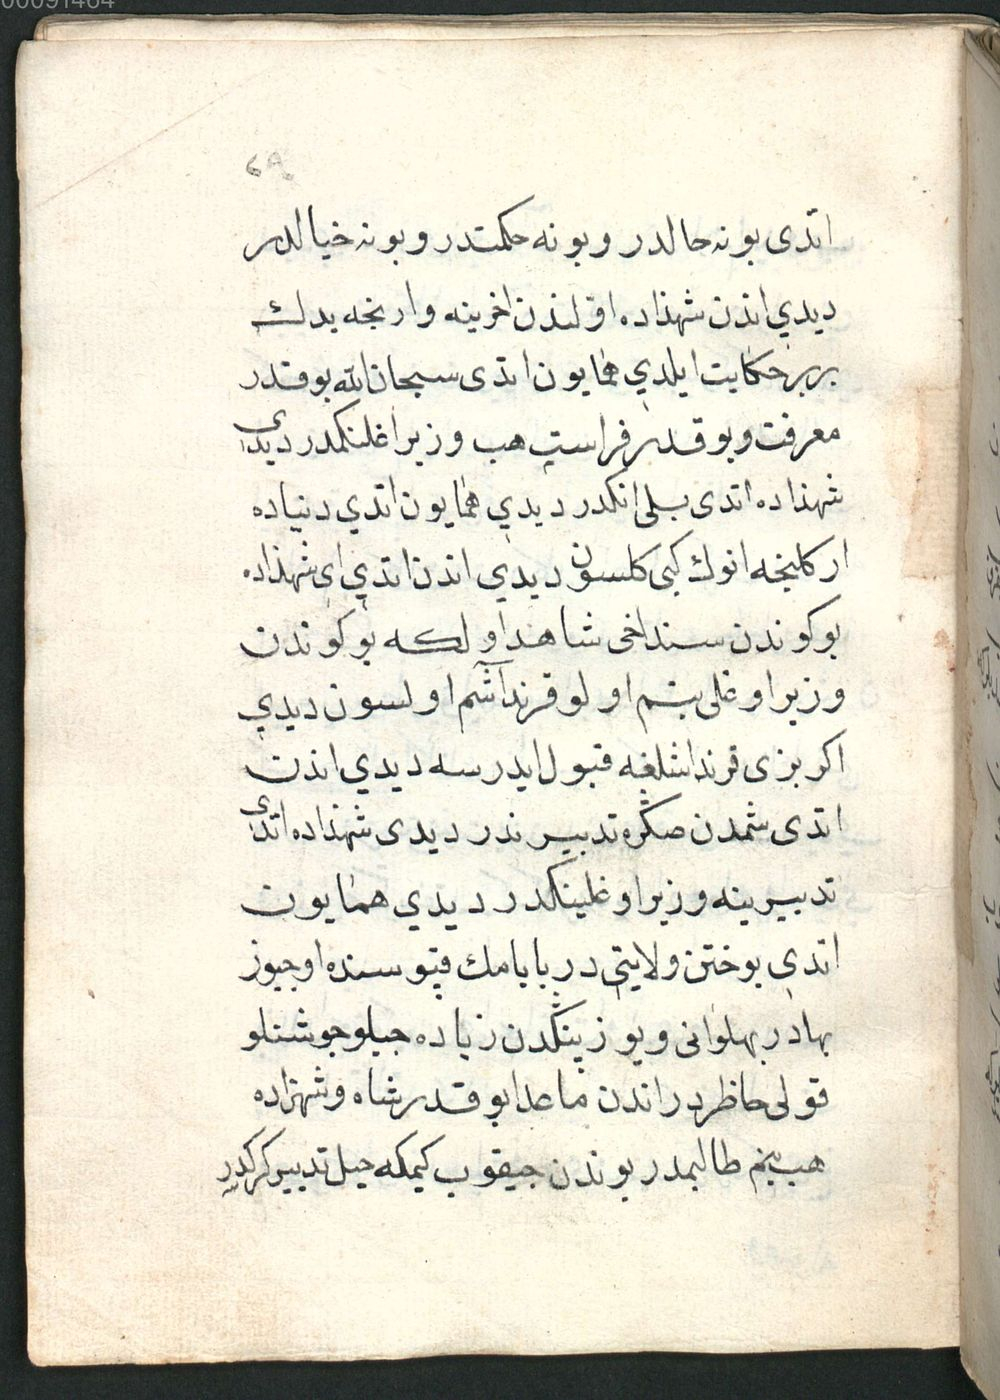 00091464
اتدی بو نه حالدر و بو نه حکمتدر و بو نه خیالدر
دیدي اندن شهزاده اولندن اخرینه وارنجه یدلك
بربر حکایت ایلدي همایون اتدی سبحان الله بو قدر
معرفت و بو قدر فراست هب وزیر اغلنکمدر دیدی
شهزاده اتدی بلی انکدر دیدي همایون اتدي دنیاده
ار کلیخه انوك کبی کلسون دیدي اندن اتدي ای شهزاده
بو کوندن سنداخی شاهد اولکه بو کوندن
وزیر اوغلی بنم اولو قرنداشم اولسون دیدي
اکر بزی قرنداشلغه قبول ایدرسه دیدي اندن
اتدی شمدن صکره تدبیر ندر دیدی شهزاده اتدی
تدبیر ینه وزیر اوغلینکدر دیدي همایون
اتدي بو ختن ولایتي در بابامك قپوسنده اوجیوز
بهادر بهلوانی و یوز بیڭدن زیاده جبلو جوشنلو
قولی حاظردر اندن ماعدا بو قدر شاه و شهزاده
هب بنم طالبمدر بوندن جیقوب کیمکه جبل تدبیر کرکدر